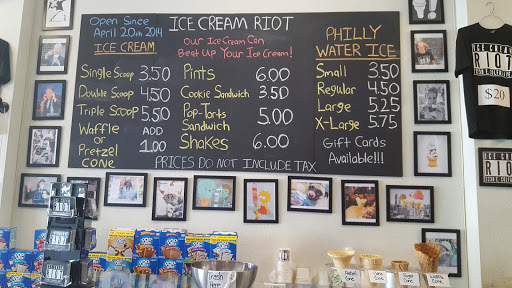 Open Since
April 20th 2014
ICE CREAM RIOT
OUR Ice Cream Can
Beat UP Your Ice Cream!
ICE CREAM
Single Scoop 3.50
Double Scoop 4.50
Triple Scoop 5.50
Waffle ADD
or
Pretzel 1.00
CONE
Pints 6.00
Cookie Sandwich 3.50
Pop-Tarts 5.00
Sandwich
Shakes 6.00
PHILLY
WATER ICE
Small 3.50
Regular 4.50
Large 5.25
X-Large 5.75
Gift Cards
Available!!!
PRICES DO NOT INCLUDE TAX
ICE CREAM
RIOT
$20
ICE CREAM
RIOT
RIOT
RIOT